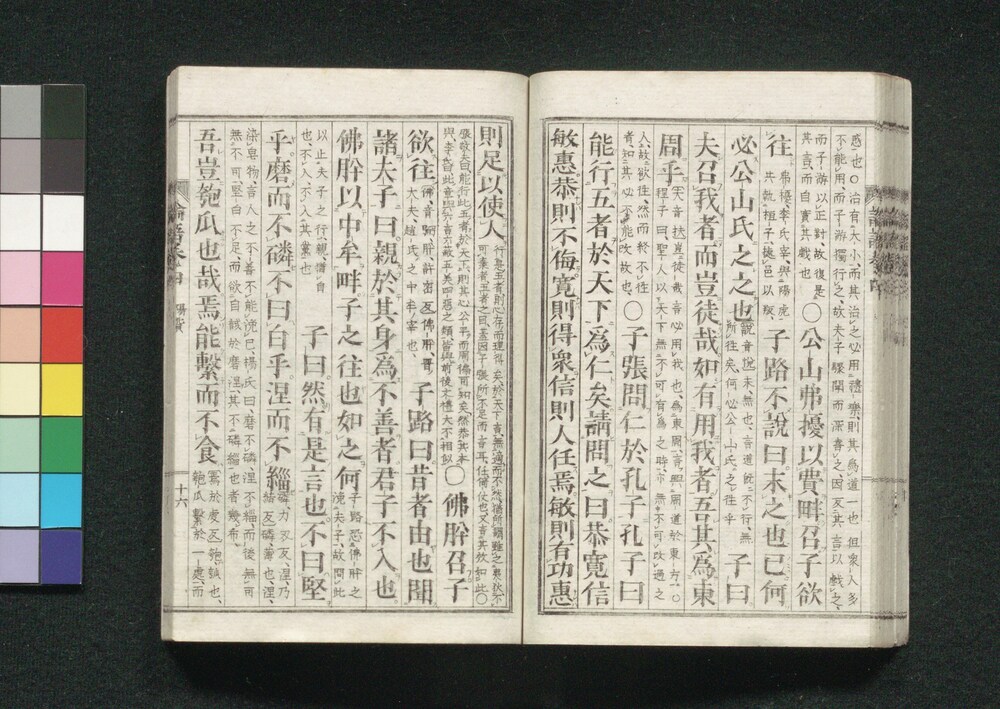 惑也○治有大小而其治之必用禮樂則其爲道一也但衆人多
不能用而子游獨行之故夫子驟聞而深喜之因反其言以戲之
而子游以正對故復是
其言而自實其戲也
○公山弗擾以費畔召子欲
往
弗擾季氏宰與陽虎
共執桓子據邑以叛
子路不說曰末之也已何
必公山氏之之也
說音悅末無也言道旣不行無
所往矣何必公山氏之往乎
子曰
夫召我者而豈徒哉如有用我者吾其爲東
周乎
夫音扶豈徒哉言必用我也爲東周言興周道於東方○
程子曰聖人以天下無不可有爲之時亦無不可改過之
人故欲往然而終不往
者知其必不能改故也
○子張問仁於孔子孔子曰
能行五者於天下爲仁矣請問之曰恭寬信
敏惠恭則不侮寬則得衆信則人任焉敏則有功惠
則足以使人
行是五者則心存而理得矣於天下言無適而不然猶所謂雖之夷狄不
可棄者五者之目蓋因子張所不足而言耳任倚仗也又言其效如此○
張敬夫曰能行此五者於天下則其心公平而周徧可知矣然恭其本
與李氏曰此章與六言六蔽五美四惡之類皆與前後文體大不相似
○佛肸召子
欲往
佛音弼肸許密反佛肸晉
大夫趙氏之中牟宰也
子路曰昔者由也聞
諸夫子曰親於其身爲不善者君子不入也
佛肸以中牟畔子之往也如之何
子路恐佛肸之
浼夫子故問此
以止夫子之行親猶自
也不入不入其黨也
子曰然有是言也不曰堅
乎磨而不磷不曰白乎涅而不緇
磷力刃反涅乃
結反磷薄也涅
染皂物言人之不善不能浼己楊氏曰磨不磷涅不緇而後無可
無不可堅白不足而欲自試於磨涅其不磷緇也者幾希
吾豈匏瓜也哉焉能繫而不食
焉於虔反匏瓠也
匏瓜繫於一處而
論語卷四　陽貨
十六